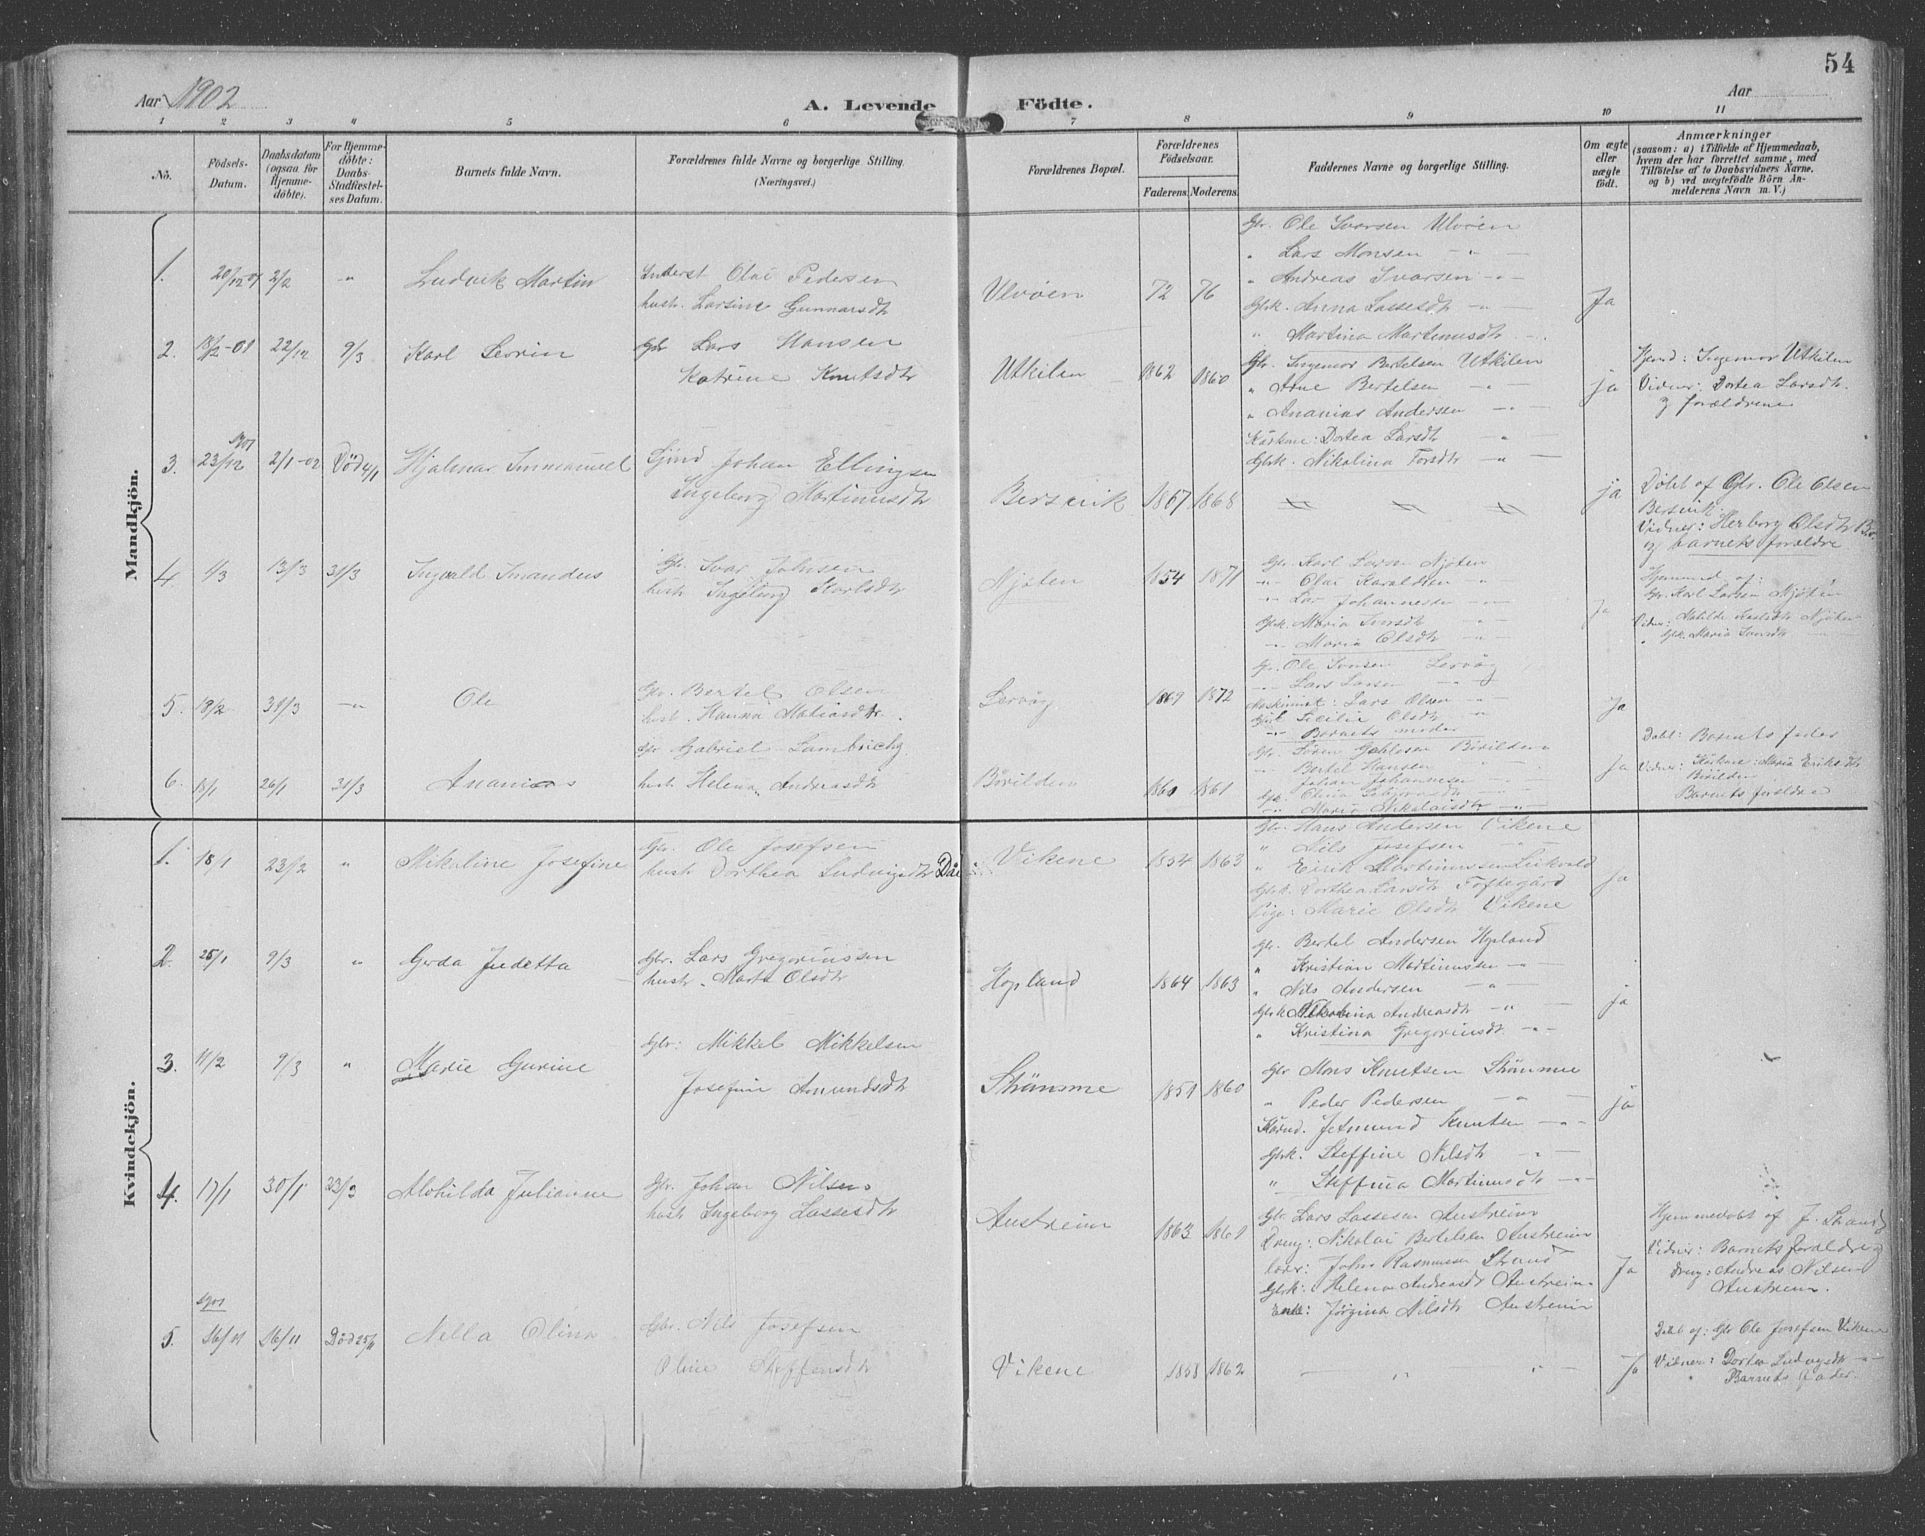 54
Aar 1902
A. Levende Födte.
Aar
1 2 3 4 5 6 7 8 9 10 11
No.
Födsels-Datum.
Daabsdatum (ogsaa for Hjemme-döbte).
For Hjemme-döbte: Daabs-Stadfæstel-ses Datum.
Barnets fulde Navn.
Forældrenes fulde Navne og borgerlige Stilling.
(Næringsvei.)
Forældrenes Bopæl.
Forældrenes Födselsaar.
Faderens. Moderens.
Faddernes Navne og borgerlige Stilling.
Om ægte eller uægte födt.
Anmærkninger
(saasom: a) i Tilfælde af Hjemmedaab,
hvem der har forrettet samme, med
Tilföielse af to Daabsvidners Navne.
og b) ved uægtefödte Börn An-
melderens Navn m. V.)
Mandkjön.
1. 20/12-01 2/2 " Ludvik Martin
Inderst Olai Pedersen
hust. Larsine Gunnarsdtr
Ulvöen 72 76
Gbr. Ole Ivarsen Ulvöen
" Lars Monsen - " -
" Andreas Ivarsen - " -
Gbrk. Anna Lassesdtr "
" Martina Martinusdtr
Ja
2. 18/12-01 22/12 9/3 Karl Severin
Gbr Lars Hansen
Katrine Knutsdtr
Utkilen 1862 1860
Gbr. Ingemor Bertelsen Utkilen
" Arne Bertelsen - " -
" Ananias Andersen - " -
Kårkone: Dortea Larsdtr "
Gbrk. Nikolina Torsdtr - " -
ja
Hjemd: Ingemor Utkilen
Vidner: Dortea Larsdtr.
og forældrene
3. 1901 23/12 2/1-02 Död 4/1 Hjalmar Immanuel
Johan Ellingsen
Ingeborg Martinusdtr
Bersvik 1867 1868
ja
Döbt af Gbr. Ole Olsen
Bersvik.
Vidner: Herborg Olsdtr B.
og barnets forældre
4. 1/3 13/3 31/3 Ingvald Imandus
Gbr. Ivar Johnsen
hustr Ingeborg Karlsdtr
Njöten 1854 1871
Gbr. Karl Larsen Njöten
" Olai Haraldsen "
" Lar Johannessen "
Gbrk. Maria Ivarsdtr
" Maria Olsdtr
Ja
Hjemmed af:
Gbr. Karl Larsen Njöten
Vidner: Matilde Karlsdtr Njöten
" Gbrk. Maria Ivarsdtr
5. 18/2 31/3 - " Ole
Gbr. Bertel Olsen
hust. Hanna Matiasdtr.
Lervåg 1869 1872
Gbr. Ole Ivarsen Lervåg
" Lars Larsen
Maskinist: Lars Olsen "
Gbrk Cecilie Olsdtr "
" Barnets moder
Ja
6. 18/1 26/1 31/3 Ananias
Gbr Gabriel Lambrichs.
hust Helena Andreasdtr
Börilden 1860 1861
Gbr. Sören Börilden
" Bertel Hansen
Johan Johannesen
" Maria Nikolaisdtr
Ja
Döbt: Barnets fader
Vidner: Kårkone: Maria Eriksdtr
Börilden
Barnets forældre
Kvindekjön.
1. 18/1 23/2 " Nikoline Josefine
Gbr. Ole Josefsen
hust Dorthea Ludvigsdtr
Vikene 1854 1863
Gbr. Hans Andersen Vikene
" Nils Josefsen
" Eirik Martinussen
Gbrk. Dorthea Larsdtr Toftegård
Pige: Marie Olsdtr Vikene
Ja
2. 25/1 9/3 " Gerda Judetta
Gbr. Lars Gregoriussen
hustr. Marta Olsdtr
Hopland 1864 1863
Gbr. Bertel Andersen Hopland
" Kristian Martinussen - "
" Nils Andersen - " -
Gbrk Nikolina Andreasdtr - " -
" Kristina Gregoriusdtr - " -
ja
3. 11/2 9/3 " Marie Gurine
Gbr: Mikkel Mikkelsen
Josefine Amundsdtr
Strömme 1851 1860
Gbr Mons Knutsen Strömme
" Peder Pedersen "
Kårmd. Jetmund Knutsen - " -
Gbrk. Steffine Nilsdtr - " -
" Steffina Martinusdtr - " -
ja
4. 17/1 30/1 23/3 Alvhilda Julianne
Gbr. Johan Nilsen
hustr Ingeborg Lassesdtr
Austreim 1863 1861
Gbr Lars Lassesen Austreim
Dreng: Nikolai Bertelsen Austreim
Johs Rasmussen Strand
Gbrk: Helena Andreasdtr Austreim
Enke: Jörgina Nilsdtr Austreim
Ja
Hjemmedöbt af J. Strand
Vidner: Barnets forældre og
dreng: Andreas Nilsen
Austreim.
5. 1901 16/11 Död 25/11 Nella Olina
Gbr. Nils Josefsen
Oline Steffensdtr
Vikene 1858 1862
- " " -
Ja
Döbt af: Gbr Ole Josefsen Vikene
Vidner: Dortea Ludvigsdtr - " -
" Barnets fader.